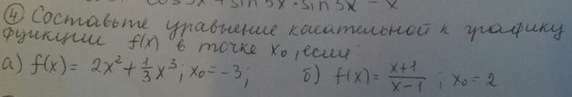 ④ Составьте уравнение касательной к графику
функции f(x) в точке x₀, если:
а) f(x) = 2x² + 1/3 x³; x₀ = -3; б) f(x) = x+1/x-1; x₀ = 2